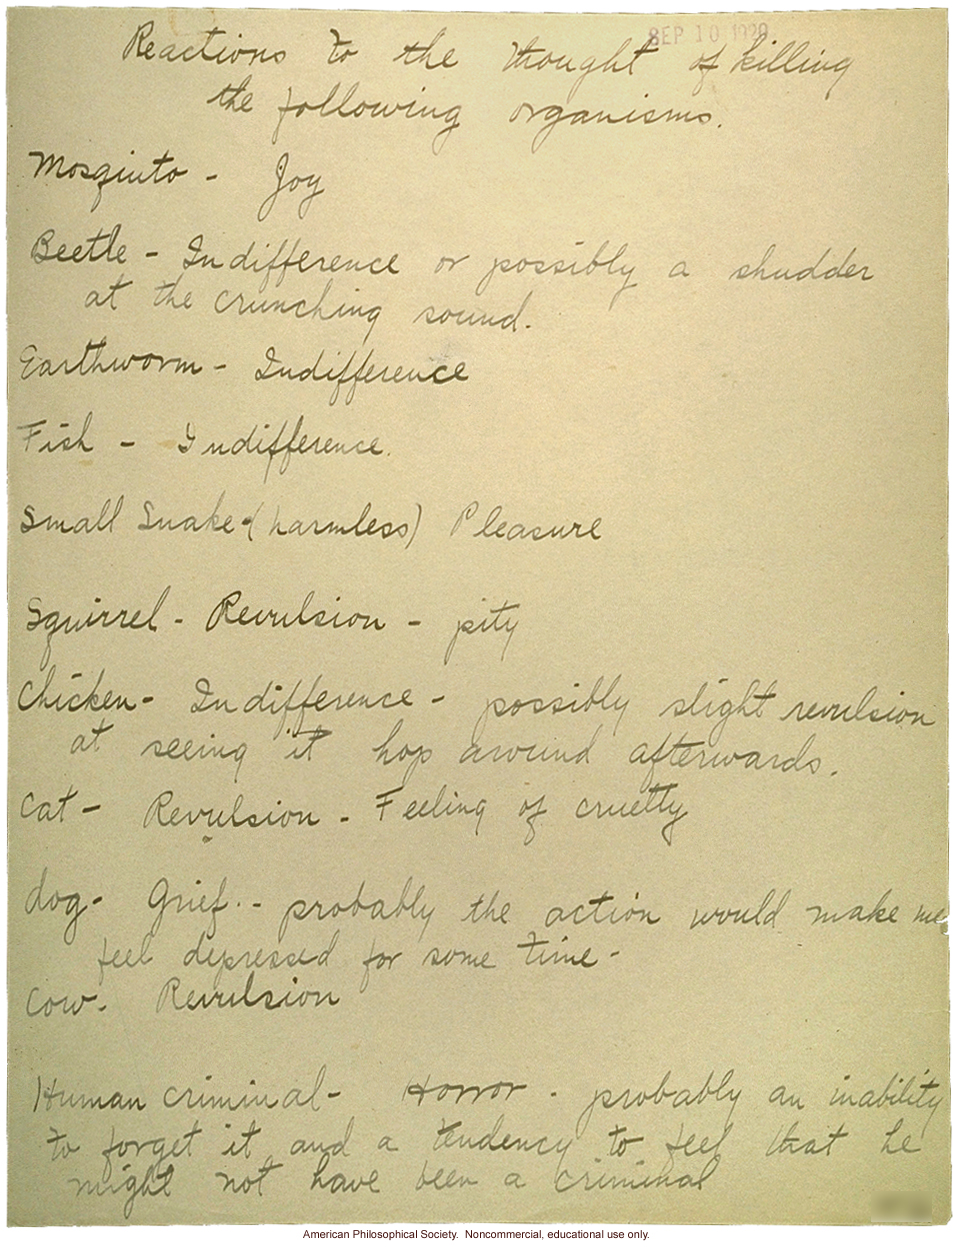 SEP 10 1929
Reactions to the thought of killing
the following organisms.
Mosqiuto - Joy
Beetle - Indifference or possibly a shudder
at the crunching sound.
Earthworm - Indifference
Fish - Indifference.
Small Snake - (harmless) Pleasure
Squirrel - Revulsion - pity
Chicken - Indifference - possibly slight revulsion
at seeing it hop around afterwards.
Cat - Revulsion - Feeling of cruelty
dog - Grief. - probably the action would make me
feel depressed for some time -
Cow - Revulsion
Human criminal - Horror - probably an inability
to forget it and a tendency to feel that he
might not have been a criminal
American Philosophical Society. Noncommercial, educational use only.